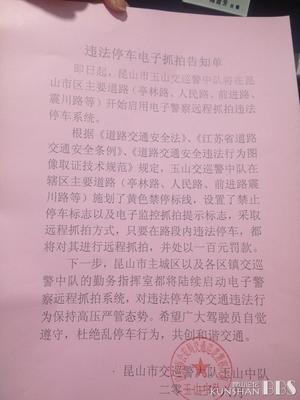 违法停车电子抓拍告知单
即日起，昆山市玉山交巡警中队将在昆
山市区主要道路（亭林路、人民路、前进路、
震川路等）开始启用电子警察远程抓拍违法
停车系统。
根据《道路交通安全法》、《江苏省道路
交通安全条例》、《道路交通安全违法行为图
像取证技术规范》规定，玉山交巡警中队在
辖区主要道路（亭林路、人民路、前进路震
川路等）施划了黄色禁停标线，设置了禁止
停车标志以及电子监控抓拍提示标志，采取
远程抓拍方式，只要在路段内违法停车，都
将对其进行远程抓拍，并处以一百元罚款。
下一步，昆山市主城区以及各区镇交巡
警中队的勤务指挥室都将陆续启动电子警
察远程抓拍系统，对违法停车等交通违法行
为保持高压严管态势。希望广大驾驶员自觉
遵守，杜绝乱停车行为，共创和谐交通。
昆山市交巡警大队玉山中队
二零
玉山中队
昆山论坛
KUNSHAN BBS